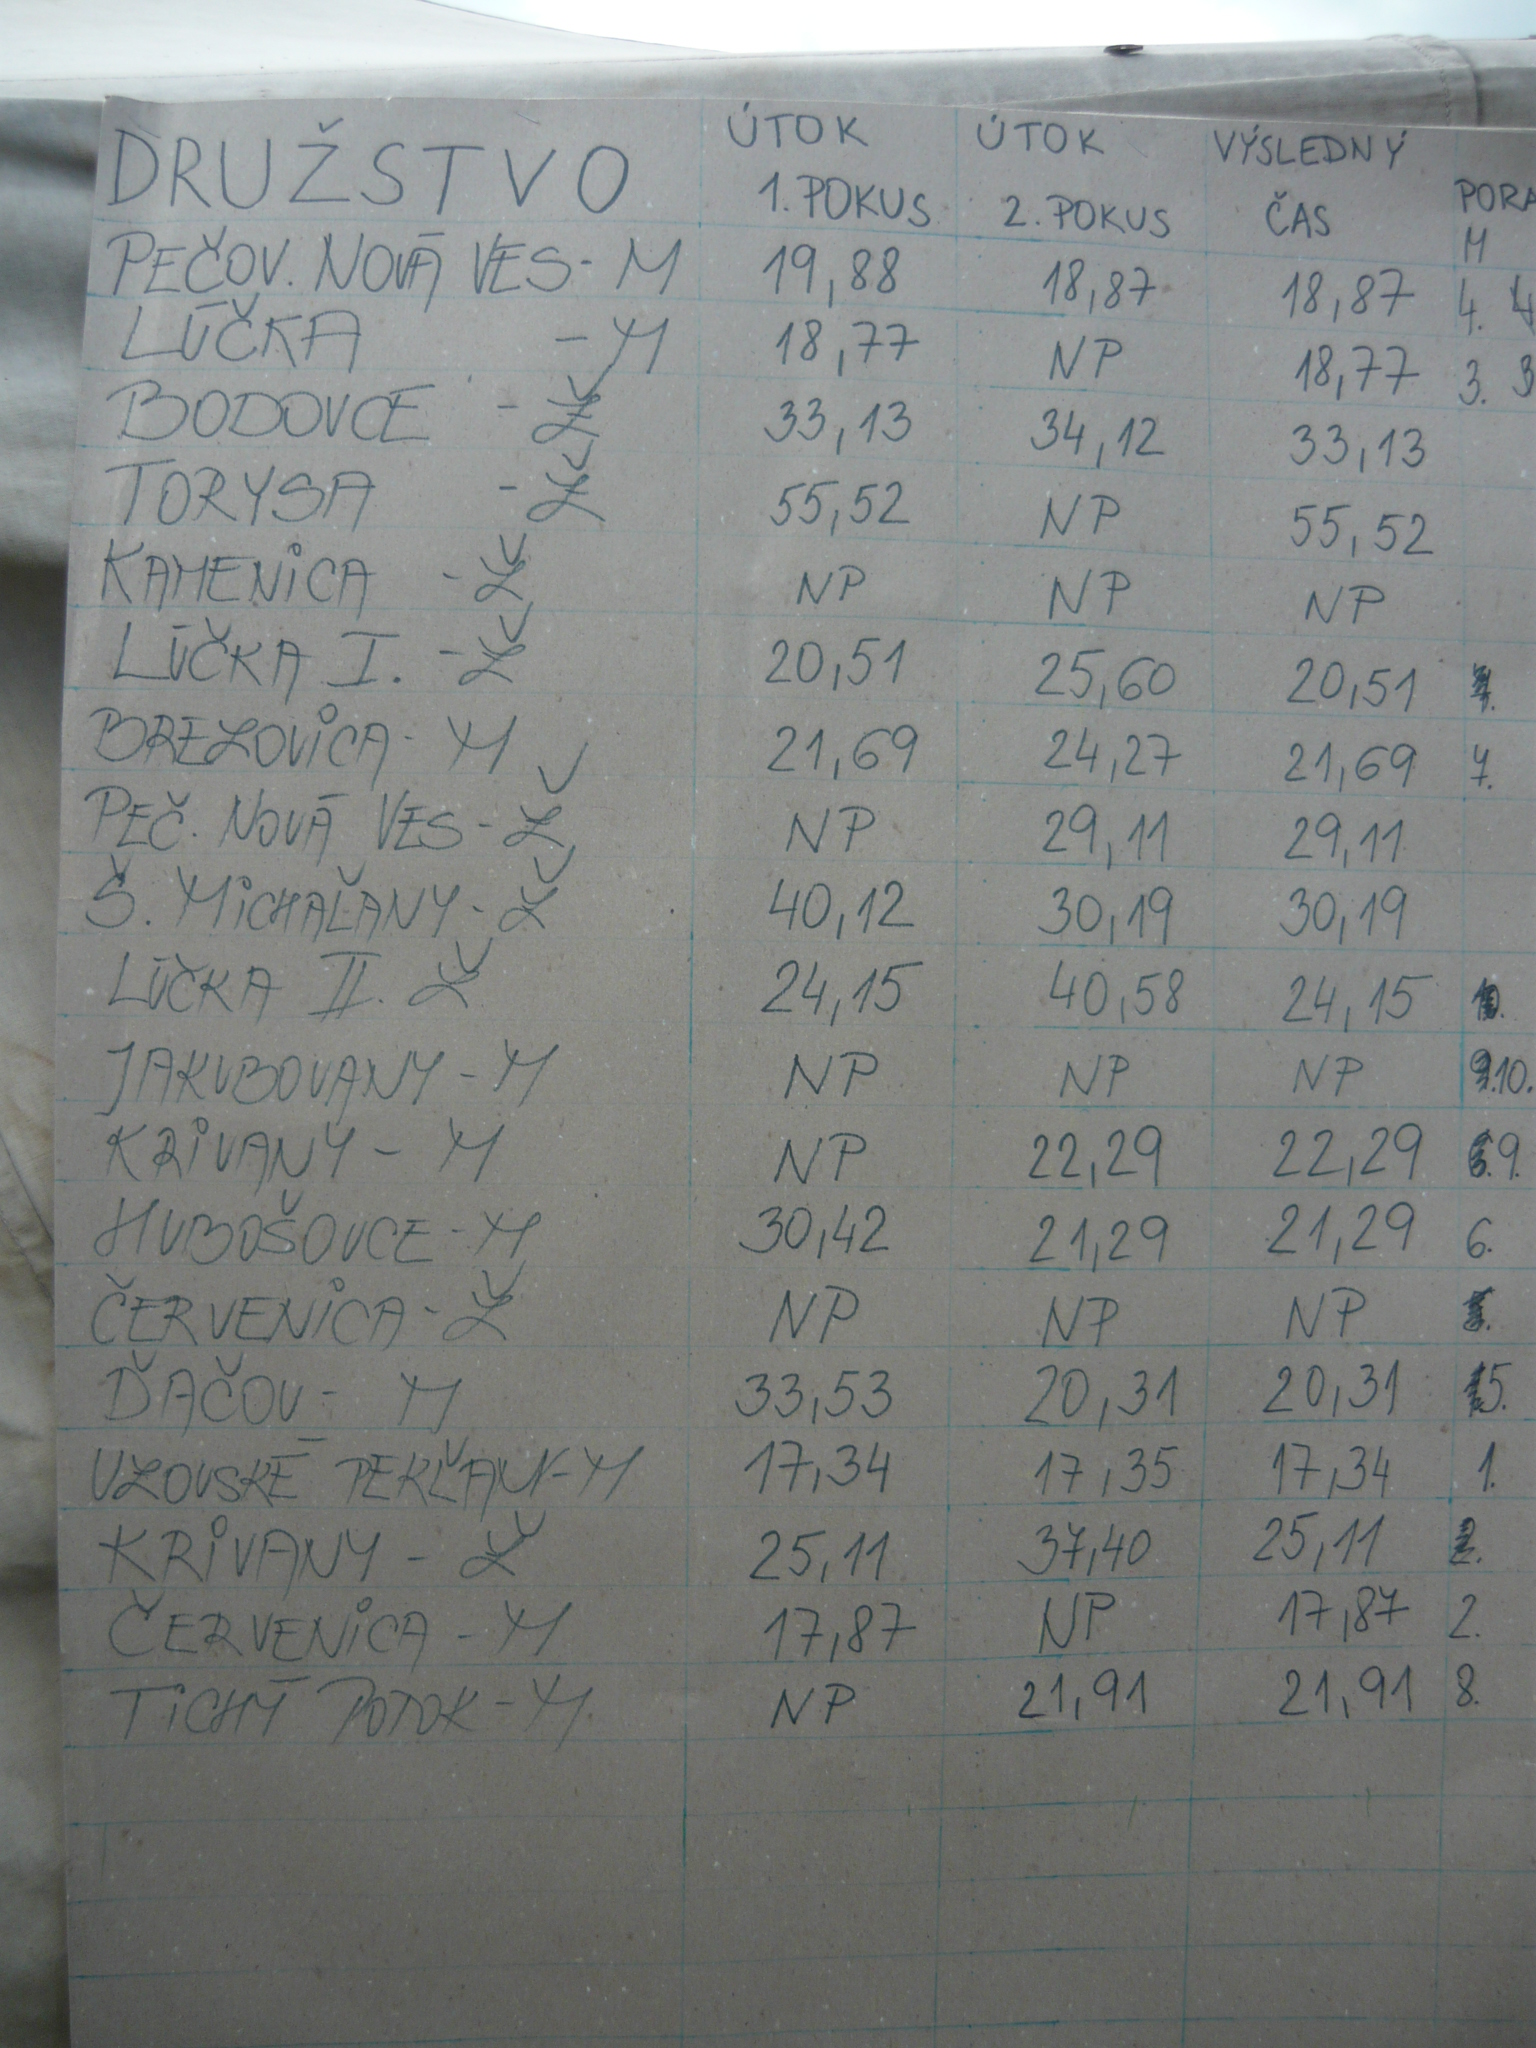 DRUŽSTVO ÚTOK 1. POKUS ÚTOK 2. POKUS VÝSLEDNÝ ČAS PORA
M
PEČOV. NOVÁ VES - M 19,88 18,87 18,87 4.
LÚČKA - M 18,77 NP 18,77 3. 3
BODOVCE - Ž 33,13 34,12 33,13
TORYSA - Ž 55,52 NP 55,52
KAMENICA - Ž NP NP NP
LÚČKA I. - Ž 20,51 25,60 20,51
BREZOVICA - M 21,69 24,27 21,69 7.
PEČ. NOVÁ VES - Ž NP 29,11 29,11
Š. MICHAĽANY - Ž 40,12 30,19 30,19
LÚČKA II. Ž 24,15 40,58 24,15
JAKUBOVANY - M NP NP NP 10.
KRIVANY - M NP 22,29 22,29 9.
HUBOŠOVCE - M 30,42 21,29 21,29 6.
ČERVENICA - Ž NP NP NP
ĎAČOV - M 33,53 20,31 20,31 5.
UZOVSKÉ PEKĽANY - M 17,34 17,35 17,34 1.
KRIVANY - Ž 25,11 37,40 25,11
ČERVENICA - M 17,87 NP 17,87 2.
TICHÝ POTOK - M NP 21,91 21,91 8.